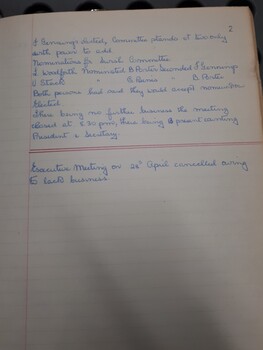 2
J Jennings elected, Committee stands at two only
with power to add
Nominations for Match Committee
J Woodforth Nominated B Porter Seconded J Jennings
" " B. Porter
Both persons had said they would accept nomination
Elected
There being no further business the meeting
closed at 8.30 pm, there being present counting
President & Secretary.
Executive Meeting on 26th April cancelled owing
to lack business